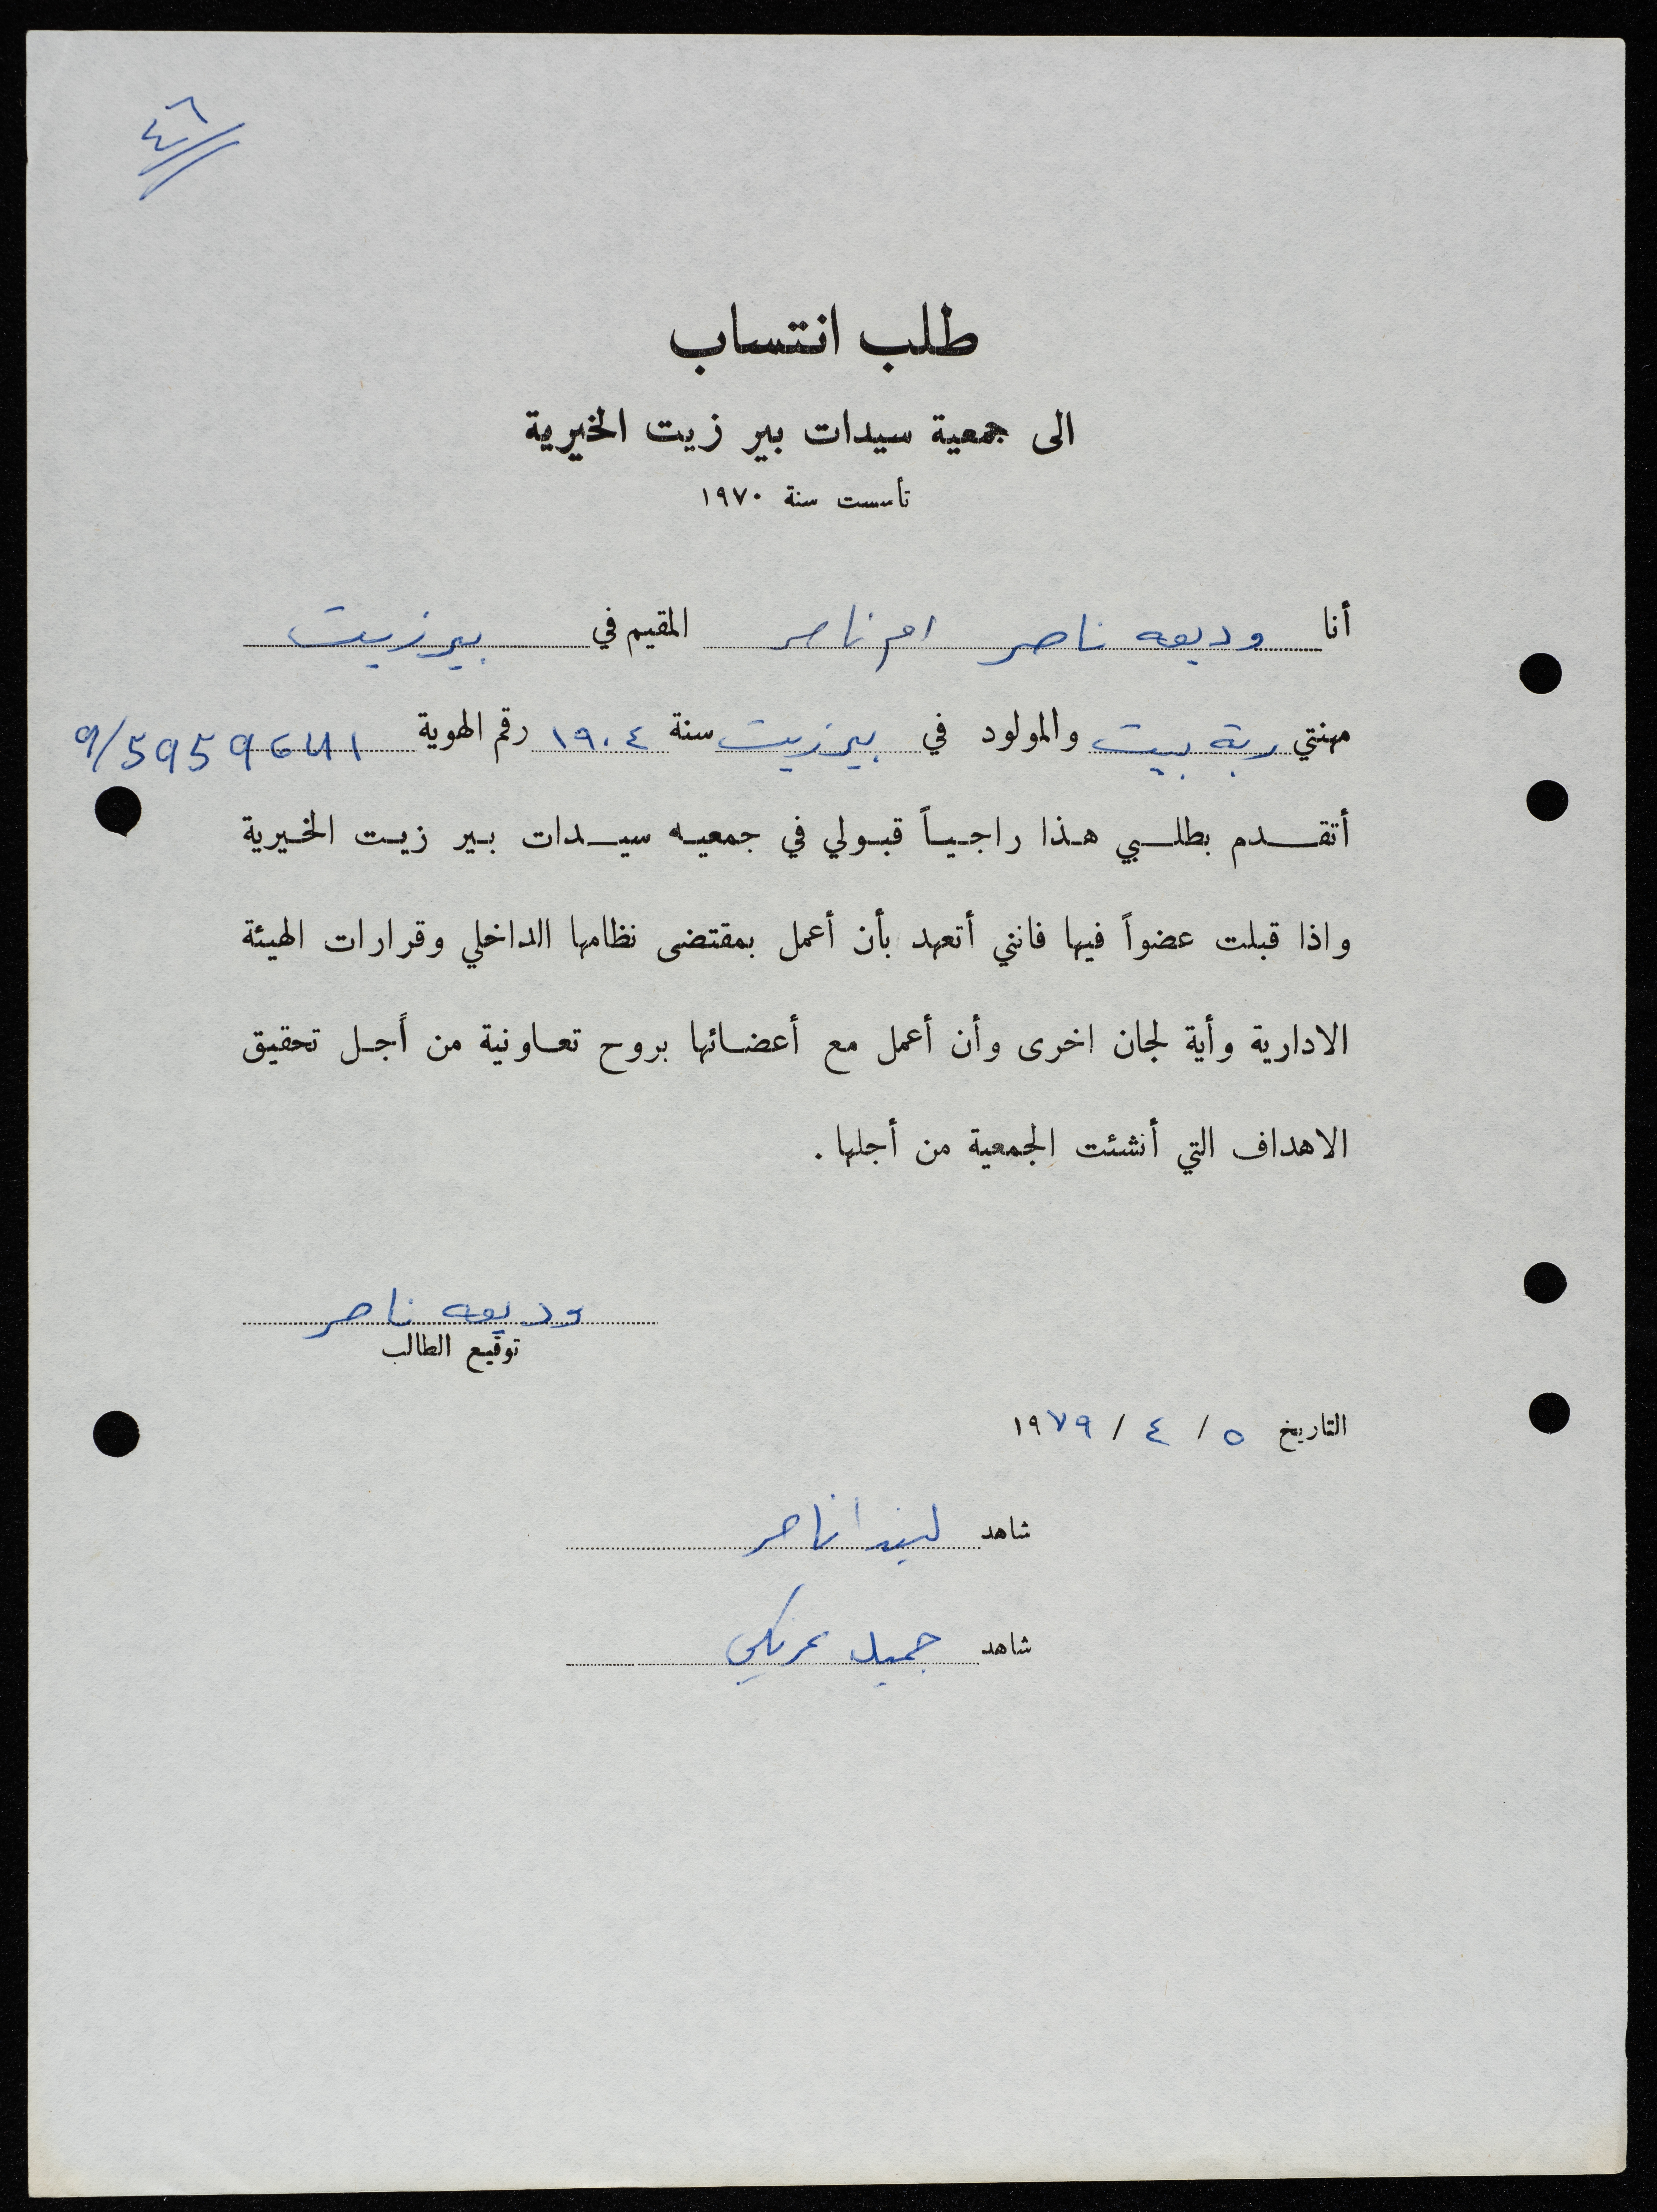 ٤٦
طلب انتساب
الى جمعية سيدات بير زيت الخيرية
تأسست سنة ١٩٧٠
أنا وديعه ناصر ام ناصر المقيم في بيرزيت
مهنتي ربة بيت والمولود في بيرزيت سنة ١٩٠٤ رقم الهوية 9/59596411
أتقدم بطلبي هذا راجياً قبولي في جمعيه سيدات بير زيت الخيرية
واذا قبلت عضواً فيها فانني أتعهد بأن أعمل بمقتضى نظامها الداخلي وقرارات الهيئة
الادارية وأية لجان اخرى وأن أعمل مع أعضائها بروح تعاونية من أجل تحقيق
الاهداف التي أنشئت الجمعية من أجلها .
وديعه ناصر
توقيع الطالب
التاريخ ٥ / ٤ / ١٩٧٩
شاهد ليندا ناصر
شاهد جميل عريكي